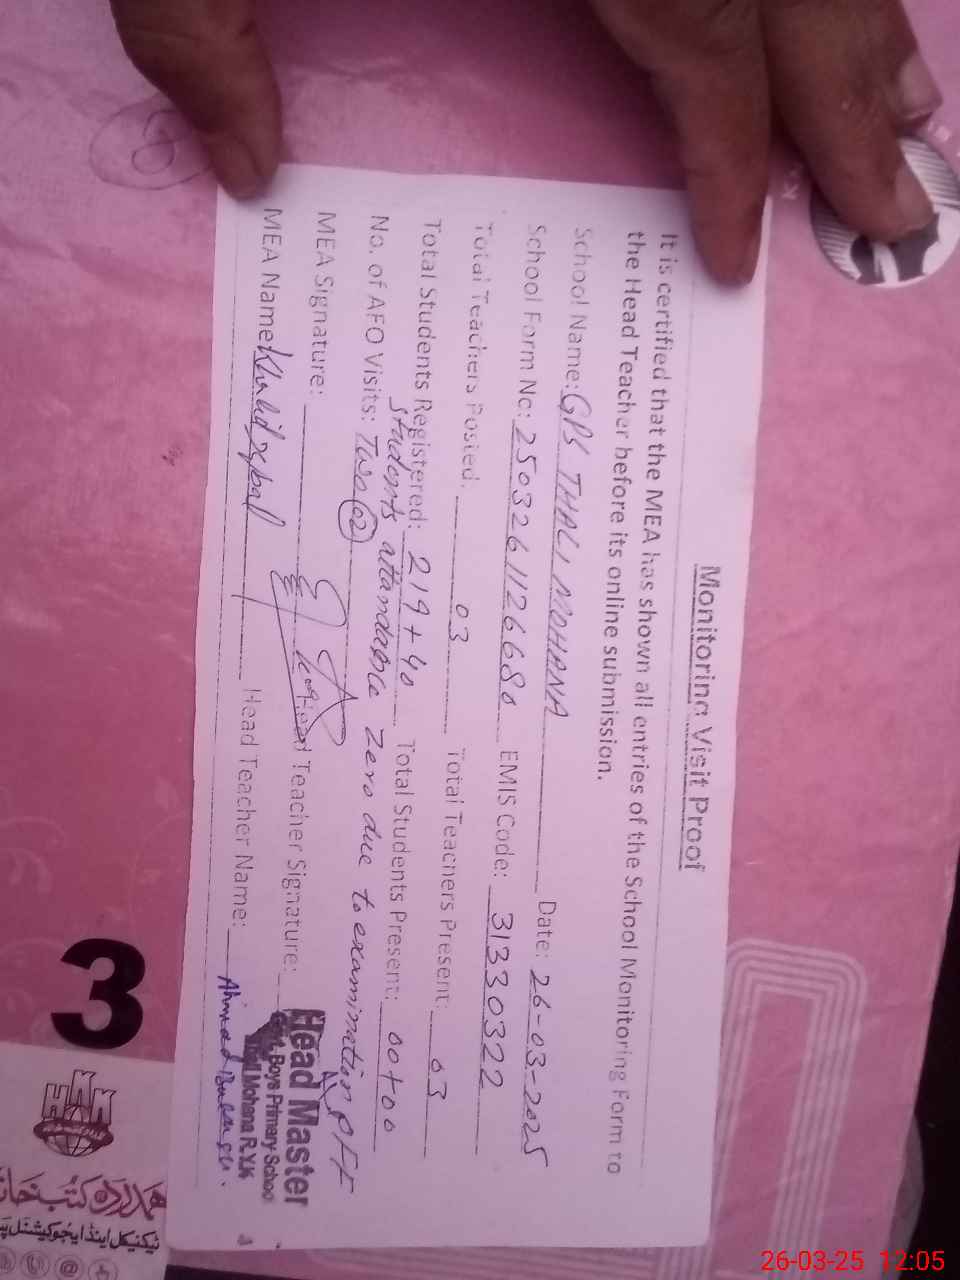 Monitoring Visit Proof
It is certified that the MEA has shown all entries of the School Monitoring Form to
the Head Teacher before its online submission.
School Name: GPS THALI MOHANA Date: 26-03-2025
School Form No: 2503261126680 EMIS Code: 31330322
Total Teachers Posted: 03 Total Teachers Present: 03
Total Students Registered: 219+40 Total Students Present: 00+00
Students attandance Zero due to examination off
No. of AEO Visits: Two (02)
MEA Signature: Head Teacher Signature:
Head Master
Govt. Boys Primary School
Thali Mohana R.Y.K
MEA Name: Khalid Iqbal Head Teacher Name: Ahmad
3
ہمدرد کتب خانہ
ٹیکنیکل اینڈ ایجوکیشنل
26-03-25 12:05